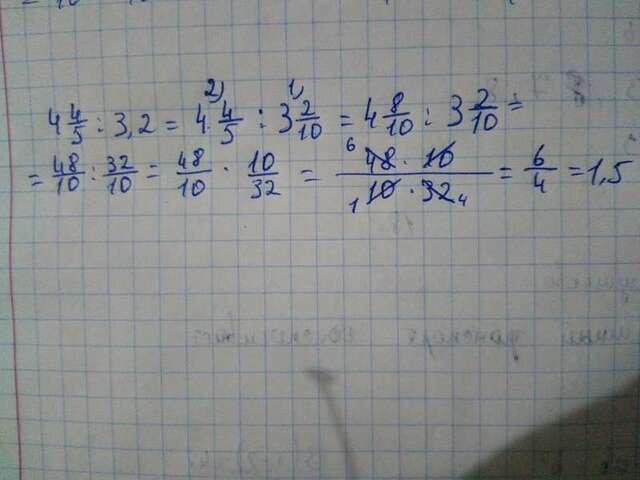 2) 1)
4 4/5 : 3,2 = 4 4/5 : 3 2/10 = 4 8/10 : 3 2/10 =
= 48/10 : 32/10 = 48/10 · 10/32 = 6 48 · 10 / 1 10 · 32 4 = 6/4 = 1,5